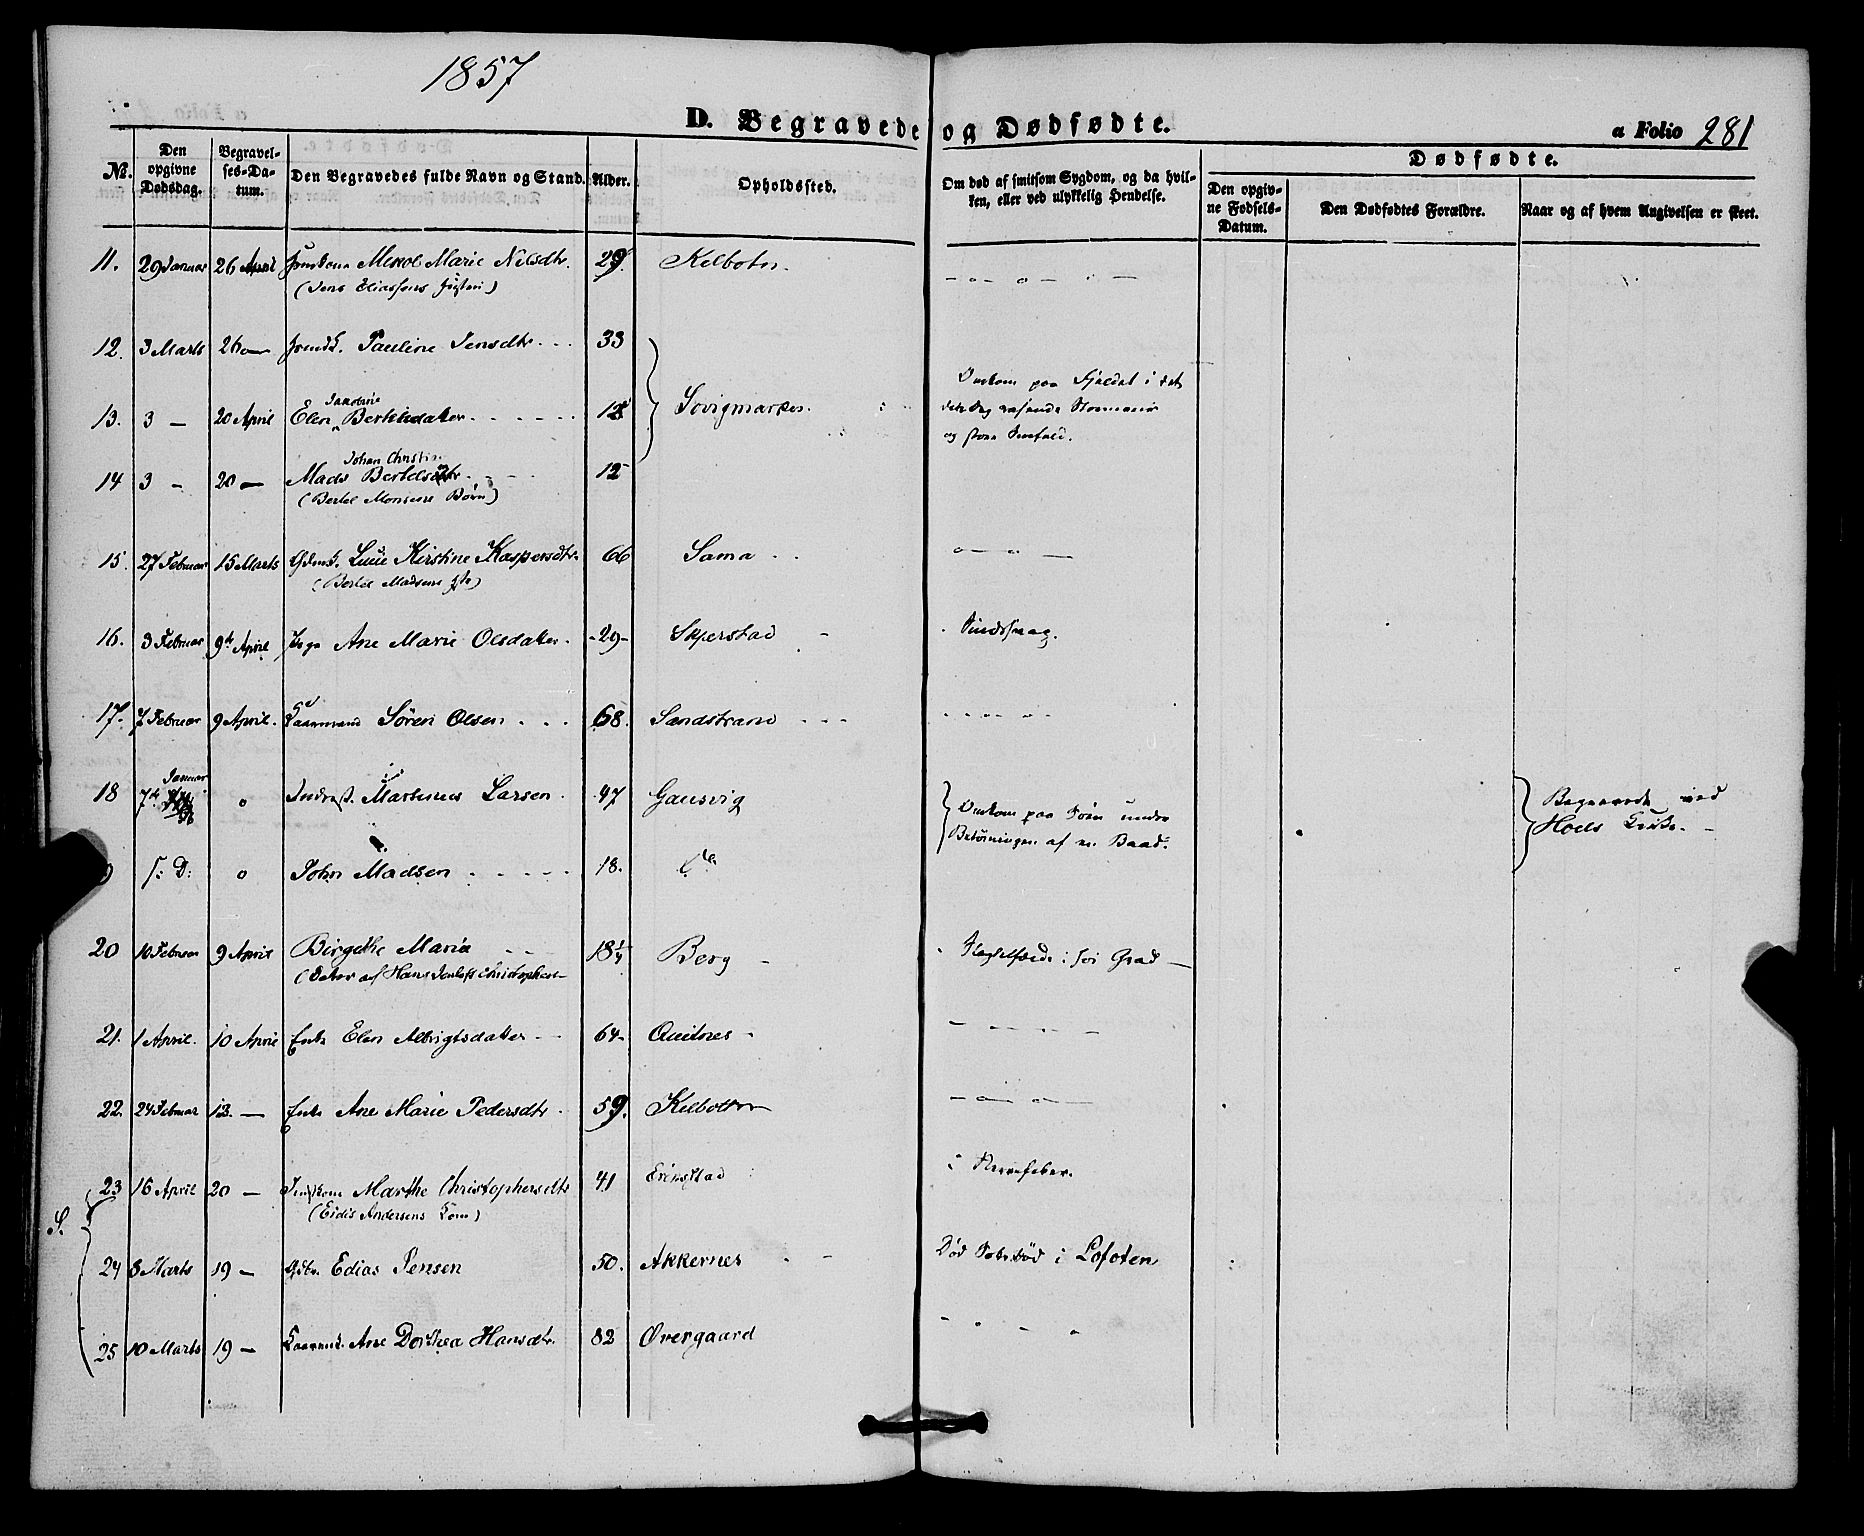 1857
D. Begravede og Dødfødte.
a Folio 281
No. Den opgivne Dødsdag. Begravelses-Datum. Den Begravedes fulde Navn og Stand. Alder. Opholdssted. Om død af smitsom Sygdom, og da hvilken, eller ved ulykkelig Hendelse. Dødfødte.
Den opgivne Fødsels-Datum. Den Dødfødtes Forældre. Naar og af hvem Angivelsen er skeet.
11. 29 Januar 26 April Merol Marie Nilsdtr. 29. Kilboten
(Jens Eliassens
12. 3 Marts 26 — Pauline Jensdtr. 33
13. 3 — 20 April Elen Jakobine Berthesdatter 12 Sovigmarken. Omkom paa Fjeldet i
14 3 — 20 — Mads Johan Christian 12
(Bertel Monsens Børn)
15. 27 Februar 15 Marts Lucie Kirstine Kaspersdtr 66 Sama
(Bertel Madsens
16. 3 Februar 9de April Pige Ane Marie Olsdatter. -29- Skjerstad
17. 7 Februar 9 April. Kaarmand Søren Olsen 68. Sandstrand
18 7de Januar o Inderst. Martinus Larsen. 47 Gausvig Omkom paa Søen under
Bjergningen af en Baad. Begravede ved
Hols Kirke. —
S: D: o John Madsen 18. do
20 10 Februar 9 April Birgithe Maria 18 1/4 Berg i høi Grad —
(Datter af Hans Christophersen
21. 1 April. 10 April Enke Elen Albrigtsdatter 64- Quitnes
22. 24 Februar 13. — Enke Ane Marie Pedersdtr 59. Kilbotten
23 16 April 20 — Marthe Christophersdtr 41 Erikstad Nervefeber.
(Eidis Andersens Kone)
S.
24 8 Marts 19 — Edias Jensen 50. Akkernes Død i Lofoten
25 10 Marts 19 — Ane Dorthea Hansdtr. 82 Overgaard